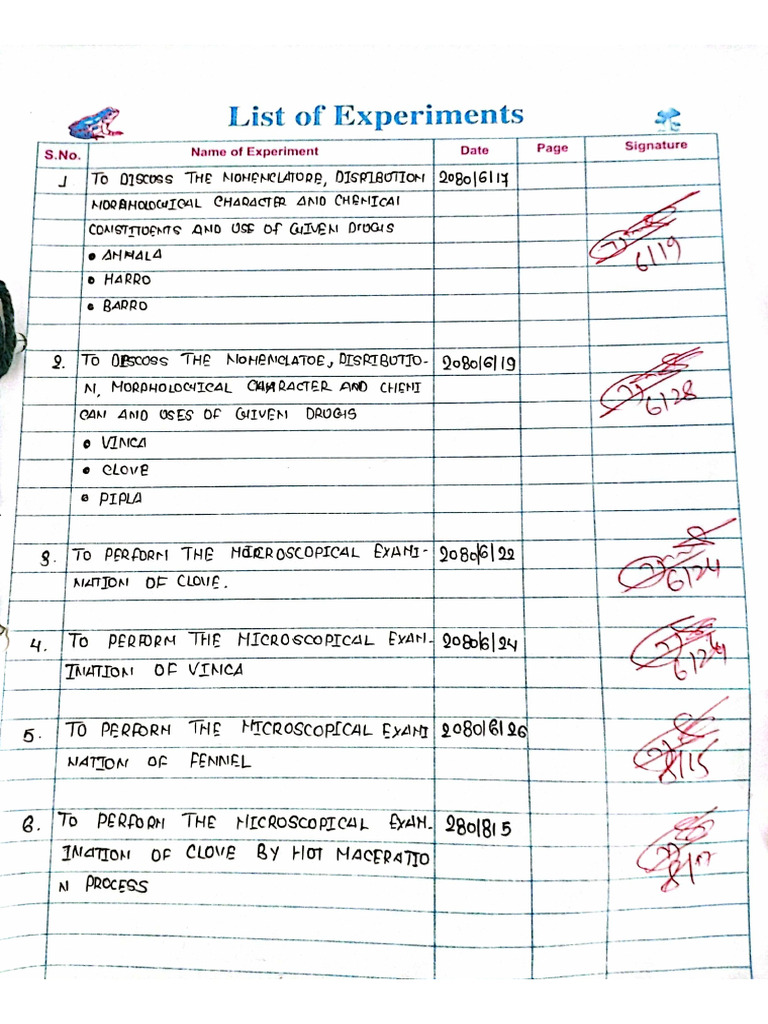 List of Experiments
S.No. Name of Experiment Date Page Signature
1 TO DISCOSS THE NOMENCLATORE, DISRIBUTION 2080/6/17
MORPHOLOGICAL CHARACTER AND CHEMICAL
CONSTITUENTS AND USE OF GIIVEN DRUGIS
6/19
• AMMALA
• HARRO
• BARRO
2. TO DISCOSS THE NOMENCLATOE, DISRIBUTIO- 2080/6/19
N, MORPHOLOGICAL CHARACTER AND CHEMI
6/28
CAN AND USES OF GIIVEN DRUGIS
• VINCA
• CLOVE
• PIPLA
3. TO PERFORM THE MICROSCOPICAL EXAMI- 2080/6/22
NATION OF CLOVE.
6/24
4. TO PERFORM THE MICROSCOPICAL EXAM- 2080/6/24
INATION OF VINCA
5. TO PERFORM THE MICROSCOPICAL EXAMI 2080/6/26
NATION OF FENNEL
8/15
6. TO PERFORM THE MICROSCOPICAL EXAM- 280/8/5
INATION OF CLOVE BY HOT MACERATIO
N PROCESS